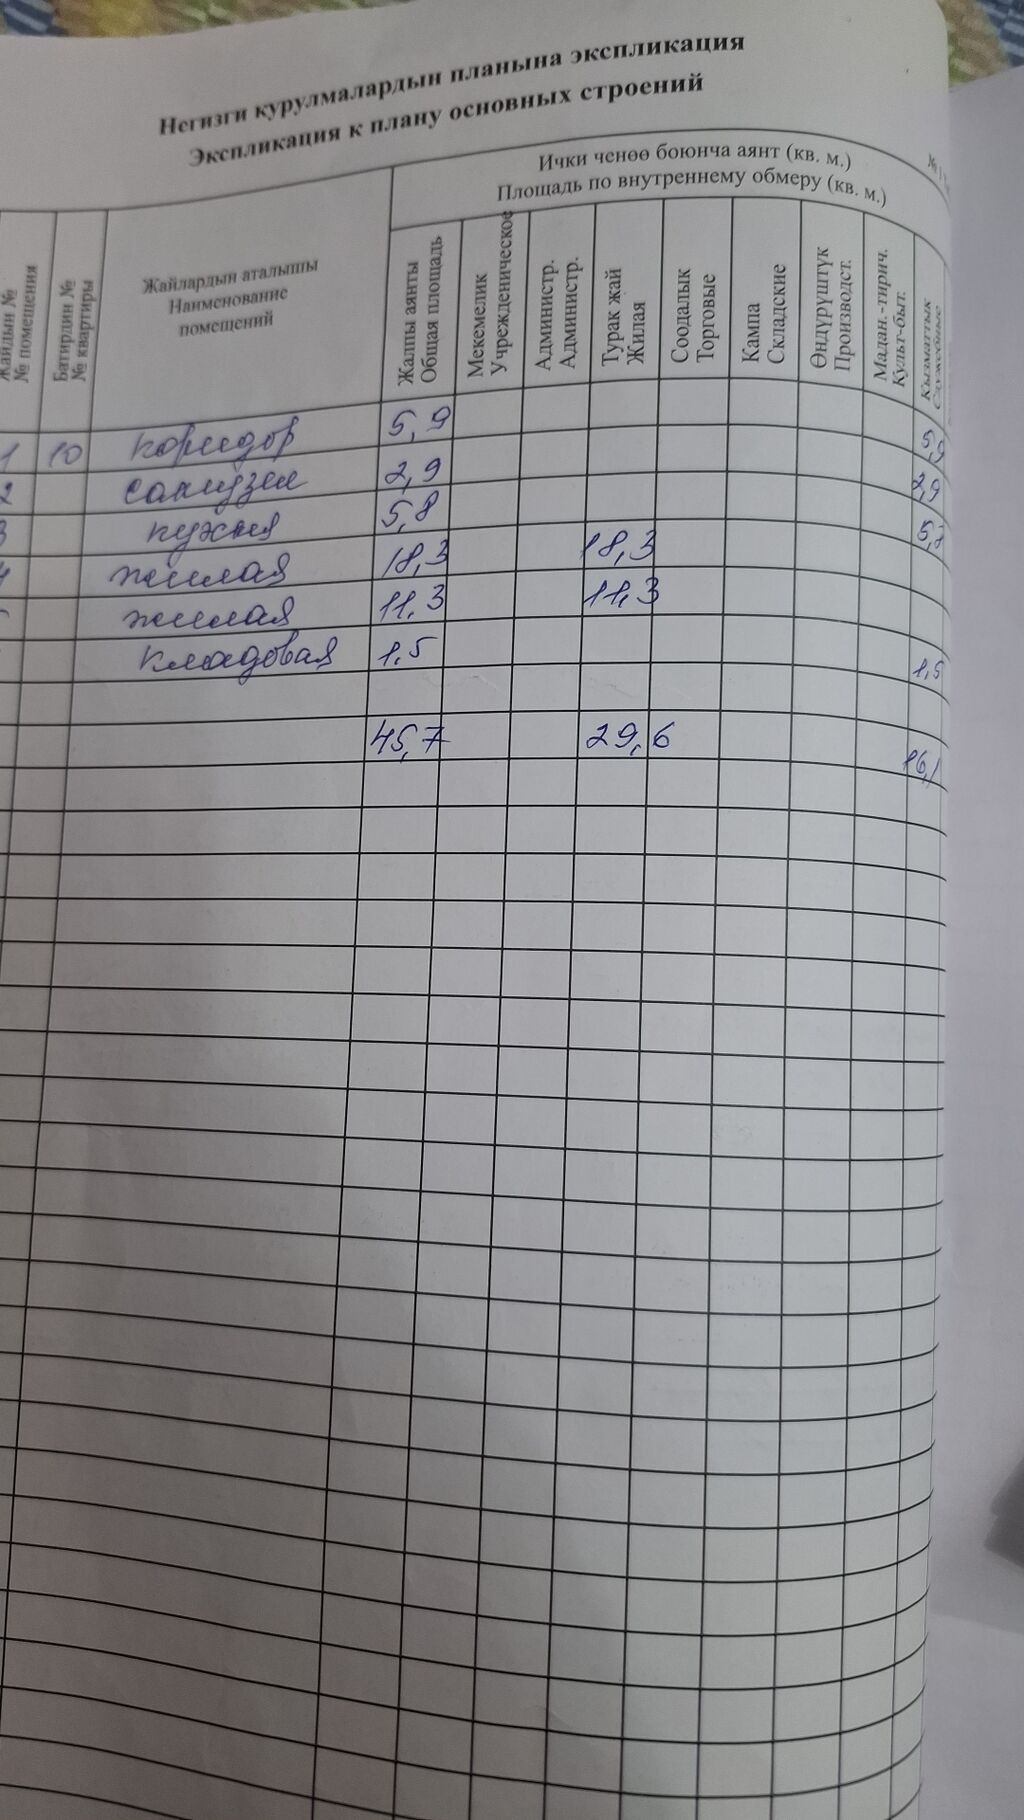 Негизги курулмалардын планына экспликация
Экспликация к плану основных строений
Ички ченөө боюнча аянт (кв. м.)
Площадь по внутреннему обмеру (кв. м.)
Жайдын №
№ помещения
Батирдин №
№ квартиры
Жайлардын аталышы
Наименование
помещений
Жалпы аянты
Общая площадь
Мекемелик
Учрежденическое
Администр.
Администр.
Турак жай
Жилая
Соодалык
Торговые
Кампа
Складские
Өндүрүштүк
Производст.
Мадан.-тирич.
Культ-быт.
Кызматтык
Служебные
1 10 коридор 5,9 5,9
2 санузел 2,9 2,9
3 кухня 5,8 5,8
4 жилая 18,3 18,3
жилая 11,3 11,3
кладовая 1,5 1,5
45,7 29,6 16,1